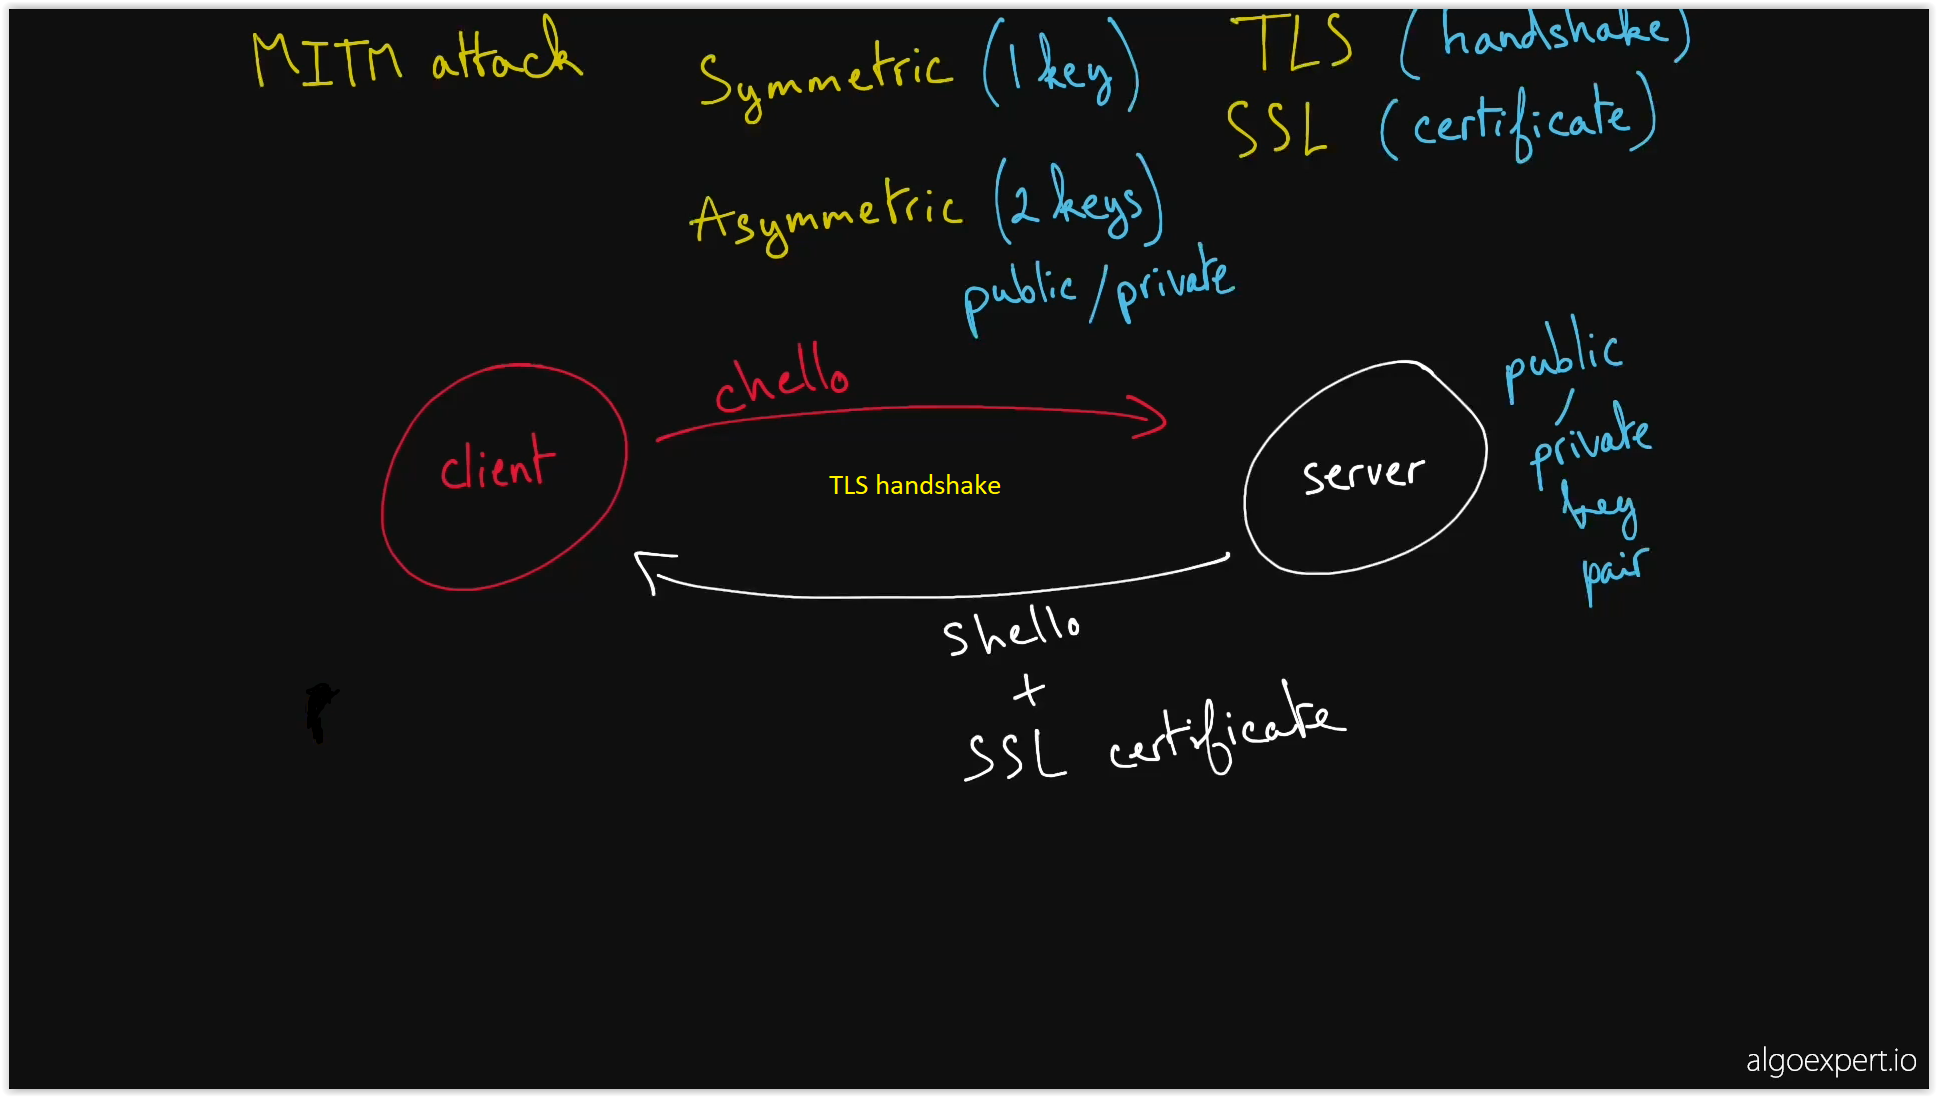 MITM attack
Symmetric (1 key)
Asymmetric (2 keys)
public / private
TLS (handshake)
SSL (certificate)
client
chello
TLS handshake
server
public
/
private
key
pair
shello
+
SSL certificate
algoexpert.io